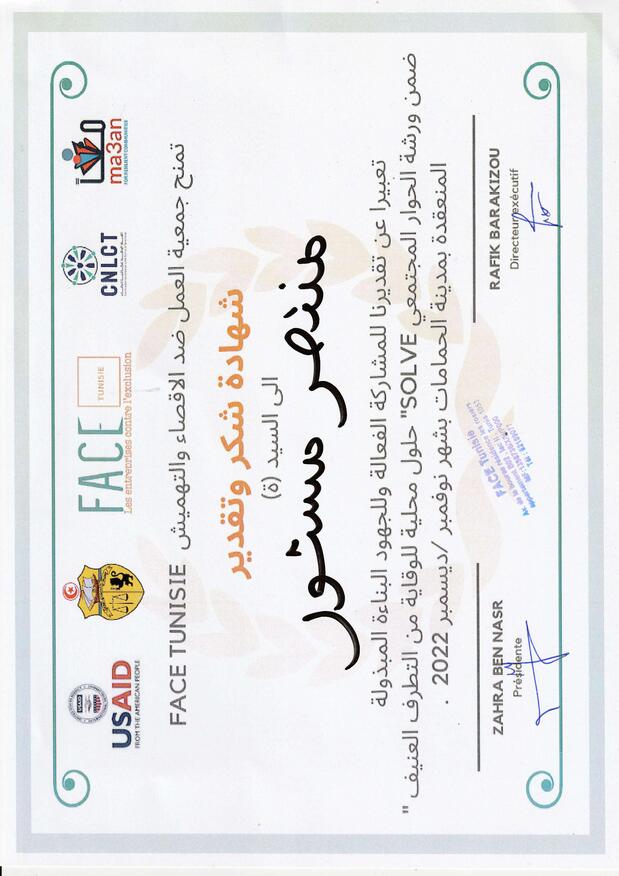 USAID
FROM THE AMERICAN PEOPLE
FACE TUNISIE
Les entreprises contre l'exclusion
CNLCT
معا
ma3an
FOR RESILIENT COMMUNITIES
تمنح جمعية العمل ضد الاقصاء والتهميش FACE TUNISIE
شهادة شكر وتقدير
الى السيد (ة)
منتصر مستور
تعبيرا عن تقديرنا للمشاركة الفعالة وللجهود البناءة المبذولة
ضمن ورشة الحوار المجتمعي SOLVE" حلول محلية للوقاية من التطرف العنيف "
المنعقدة بمدينة الحمامات بشهر نوفمبر /ديسمبر 2022 .
ZAHRA BEN NASR
Présidente
FACE Tunisie
Av. de la bourse résidence les
appartement B02, lac II, Tunis 1053
RAFIK BARAKIZOU
Directeur exécutif